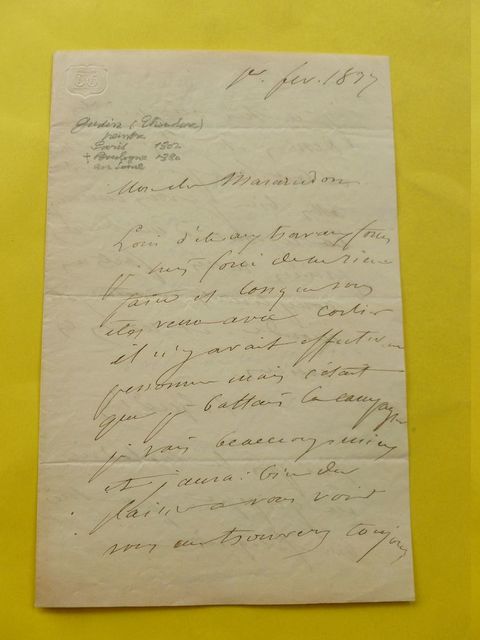 1er fev. 1877
Gudin (Théodore)
peintre
Paris 1802
+ Boulogne 1880
sur Seine
Mon cher
Loin d'être aux travaux forcés
je suis forcé de ne rien
faire et lorsque vous
êtes venu avec
il n'y avait effectivement
personne mais c'était
que je battais la campagne
je vais beaucoup mieux
et j'aurai bien du
plaisir a vous voir
vous me trouverez toujours